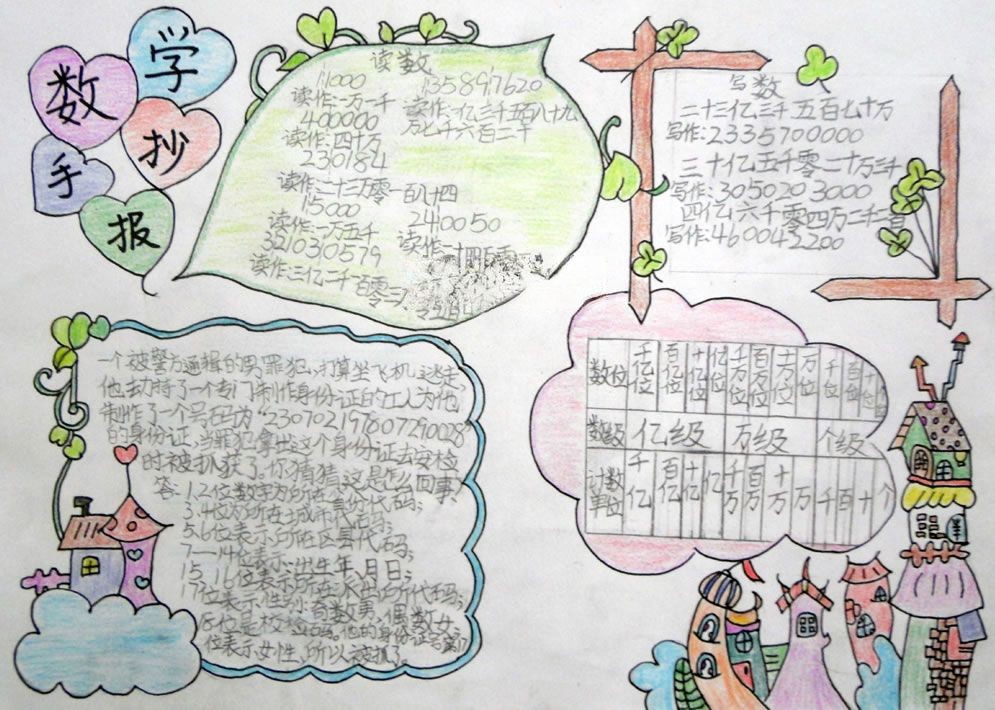 数学
抄
手
报
读数
11000
读作:一万一千
400000
读作:四十万
230184
读作:二十三万零一百八十四
15000
读作:一万五千
321030579
读作:三亿二千一百零三
135897620
读作:一亿三千五百八十九
万七千六百二十
2410050
读作:
写数
二十三亿三千五百七十万
写作:2335700000
三十亿五千零二十万三千
写作:305020 3000
四亿六千零四万二千二百
写作:460042200
一个被警方通缉的男罪犯,打算坐飞机逃走,
他劫持了一个专门制作身份证的工人为他
制作了一个号码为“230702197807290028”
的身份证,当罪犯拿出这个身份证去安检
时被抓获了。你猜猜,这是怎么回事?
答:1.2位数字为所在省的代码;
3.4位为所在城市代码;
5.6位表示:所在区县代码;
7—14位表示:出生年、月、日;
15.16位表示:所在派出所代码;
17位表示:性别:奇数男,偶数女;
18位是校验码。他的身份证号第17
位表示女性,所以被抓了。
数位 千亿位 百亿位 十亿位 亿位 千万位 百万位 十万位 万位 千位 百位 十位 个位
数级 亿级 万级 个级
计数单位 千亿 百亿 十亿 亿 千万 百万 十万 万 千 百 十 个